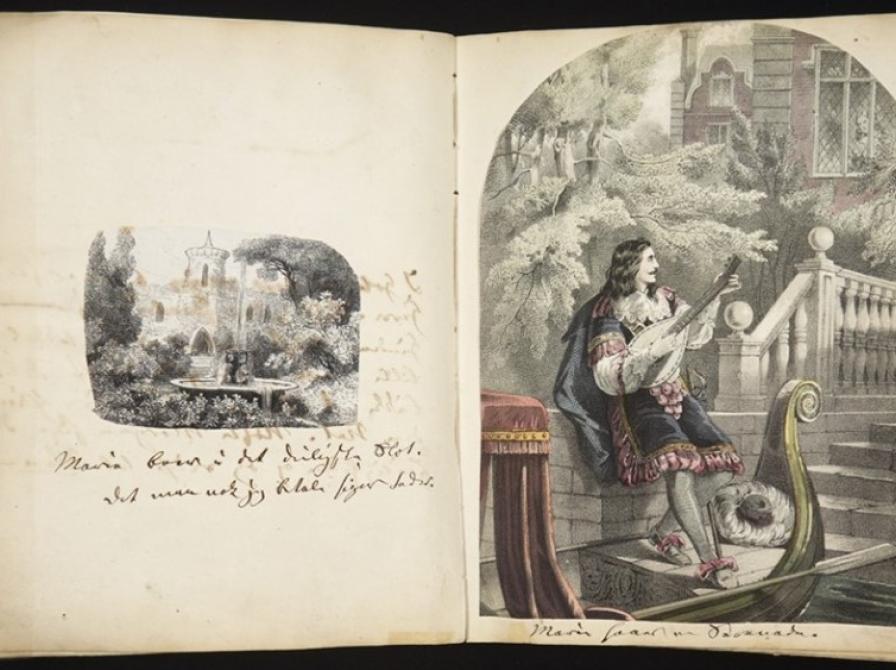 Maria boer i det deiligste Slot.
Det maa nok jeg betale siger Fader.
Marie faaer en Serenade.